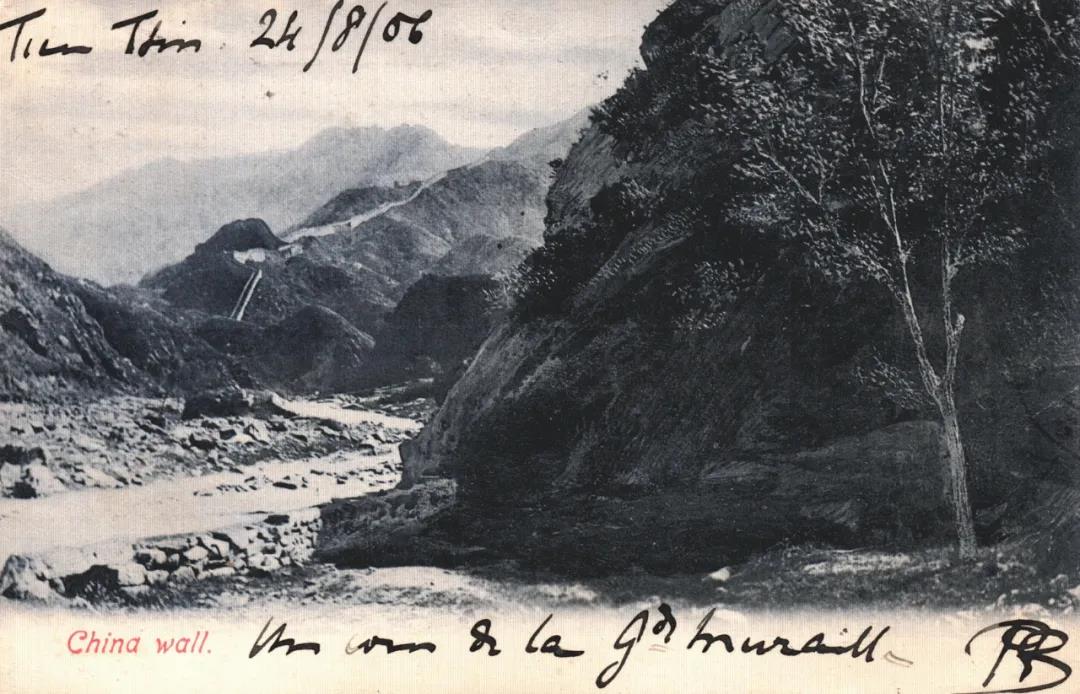 Tien Tsin 24/8/06
China wall.
Un coin de la Gde muraille